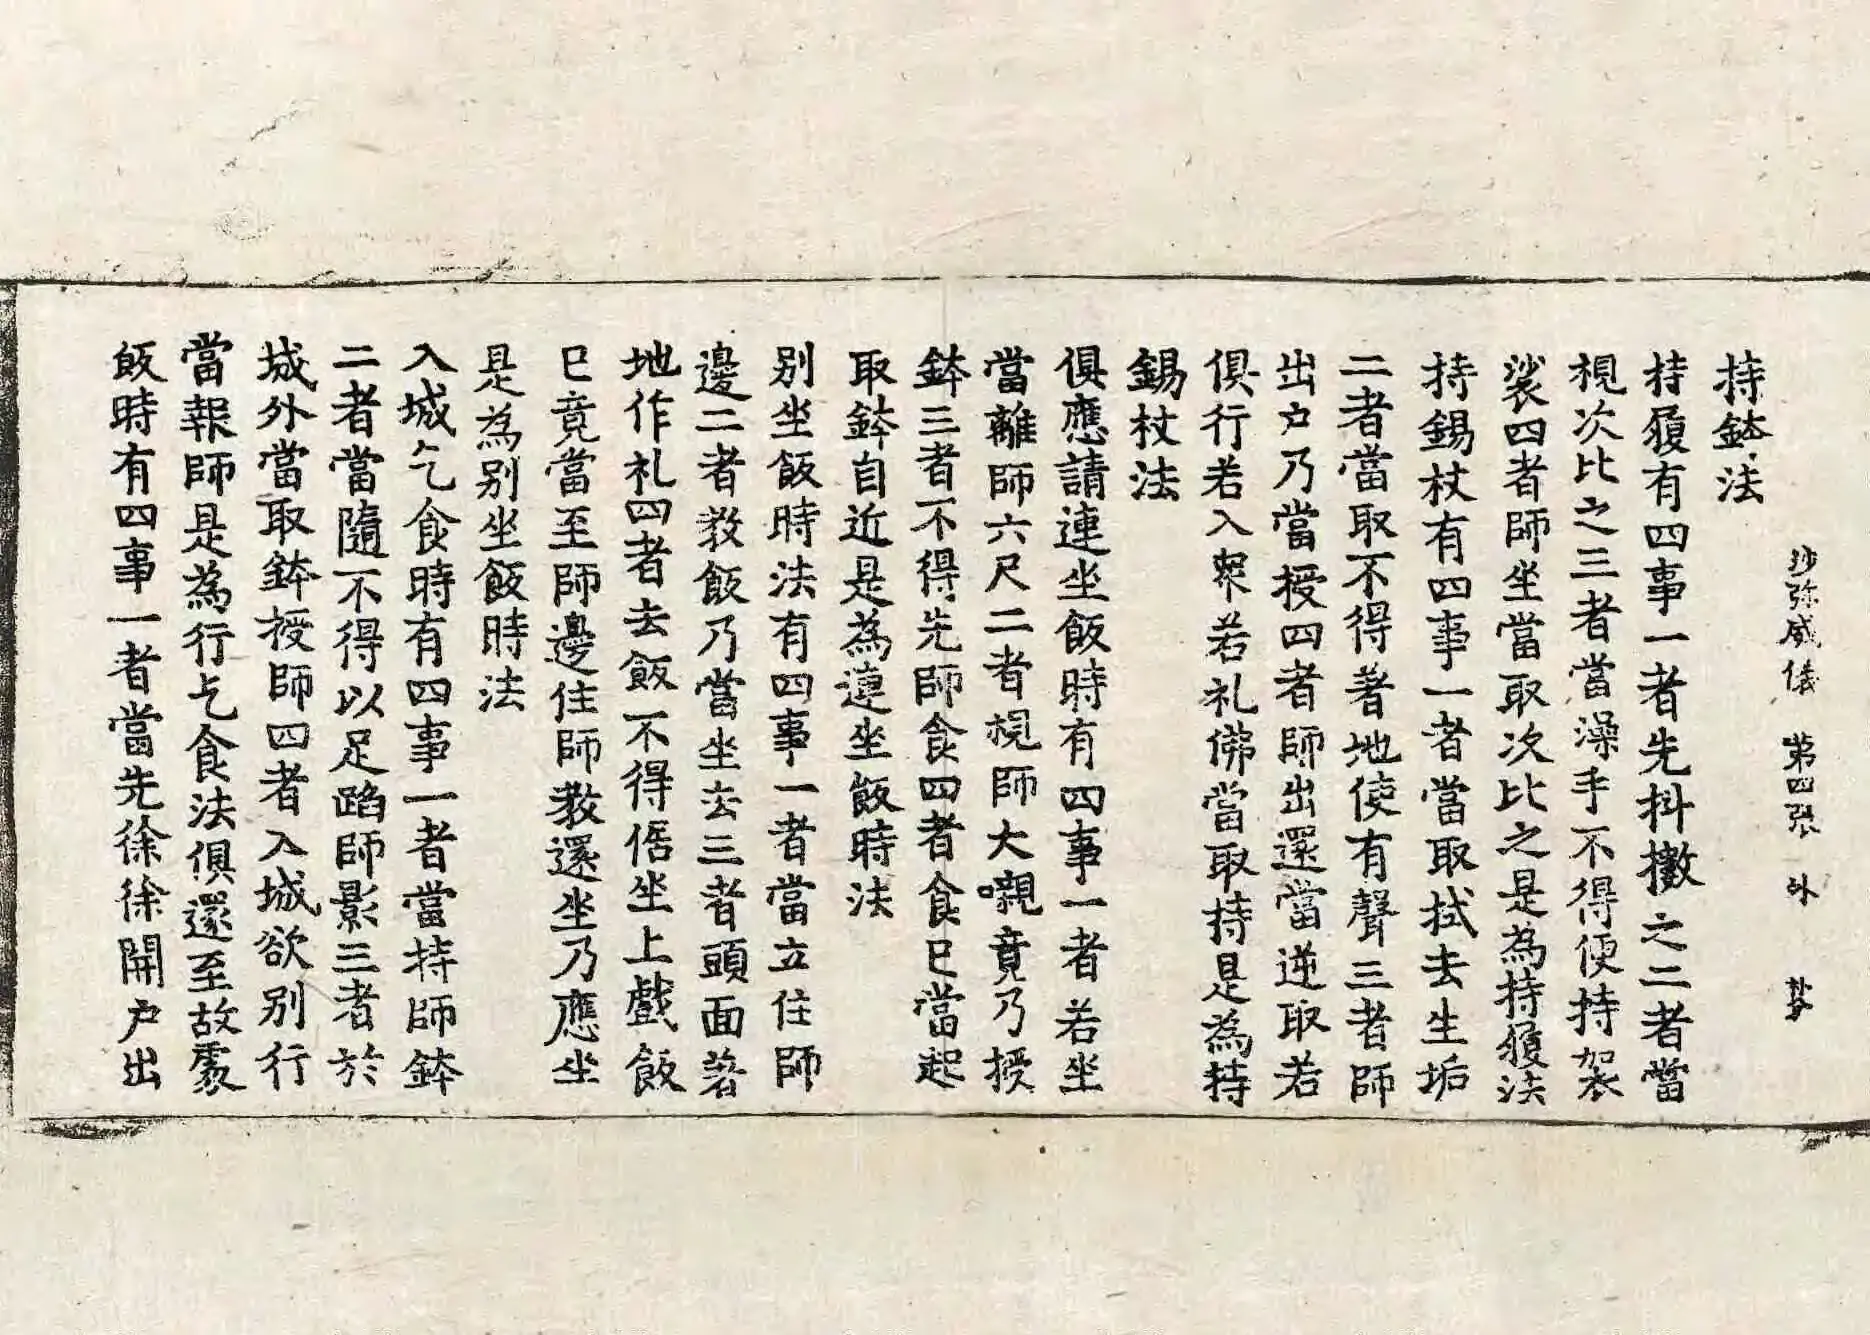 沙弥威儀　第四張　卧
持鉢法
持履有四事一者先抖擻之二者當
視次比之三者當澡手不得便持袈
裟四者師坐當取次比之是為持履法
持錫杖有四事一者當取拭去生垢
二者當取不得著地使有聲三者師
出户乃當授四者師出還當逆取若
俱行若入衆若礼佛當取持是為持
錫杖法
俱應請連坐飯時有四事一者若坐
當離師六尺二者視師大嚫竟乃授
鉢三者不得先師食四者食已當起
取鉢自近是為連坐飯時法
别坐飯時法有四事一者當立住師
邊二者教飯乃當坐去三者頭面著
地作礼四者去飯不得倨坐上戲飯
已竟當至師邊住師教還坐乃應坐
是為别坐飯時法
入城乞食時有四事一者當持師鉢
二者當隨不得以足蹈師影三者於
城外當取鉢授師四者入城欲别行
當報師是為行乞食法俱還至故處
飯時有四事一者當先徐徐開户出